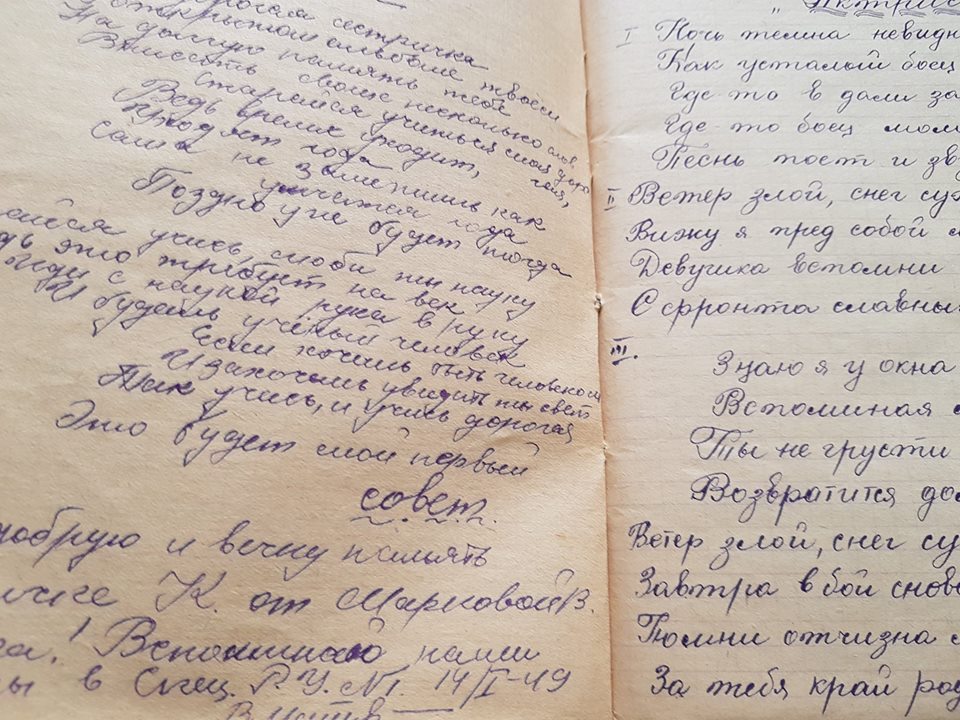 сестричка
открытом альбоме твоём
На долгую память тебе
Вписать свои несколько слов
Старайся учиться моя дорогая,
Ведь время уходит,
Пройдут года
Сама не заметишь как
умчатся года
Поздно уж будет тогда
учись, люби ты науку
это требует на век
Иди с наукой рука в руку
И будешь учёный человек
Если хочешь быть человеком
И захочешь увидить ты свет
Так учись, и учись дорогая
Это будет мой первый
совет.
добрую и вечну память
К. от Марковой В.
! Вспоминаю наши
в Спец. Р.У. №1. 14/I-49
I Ночь темна невидн
Как усталый боец
Где-то в дали за
Где-то боец мол
Песнь поет и зв
II Ветер злой, снег су
Вижу я пред собой
Девушка вспомни
С фронта славны
III.
Знаю я у окна
Вспоминая
Ты не грусти
Возвратится до
Ветер злой, снег су
Завтра в бой снова
Помни отчизна
За тебя край род